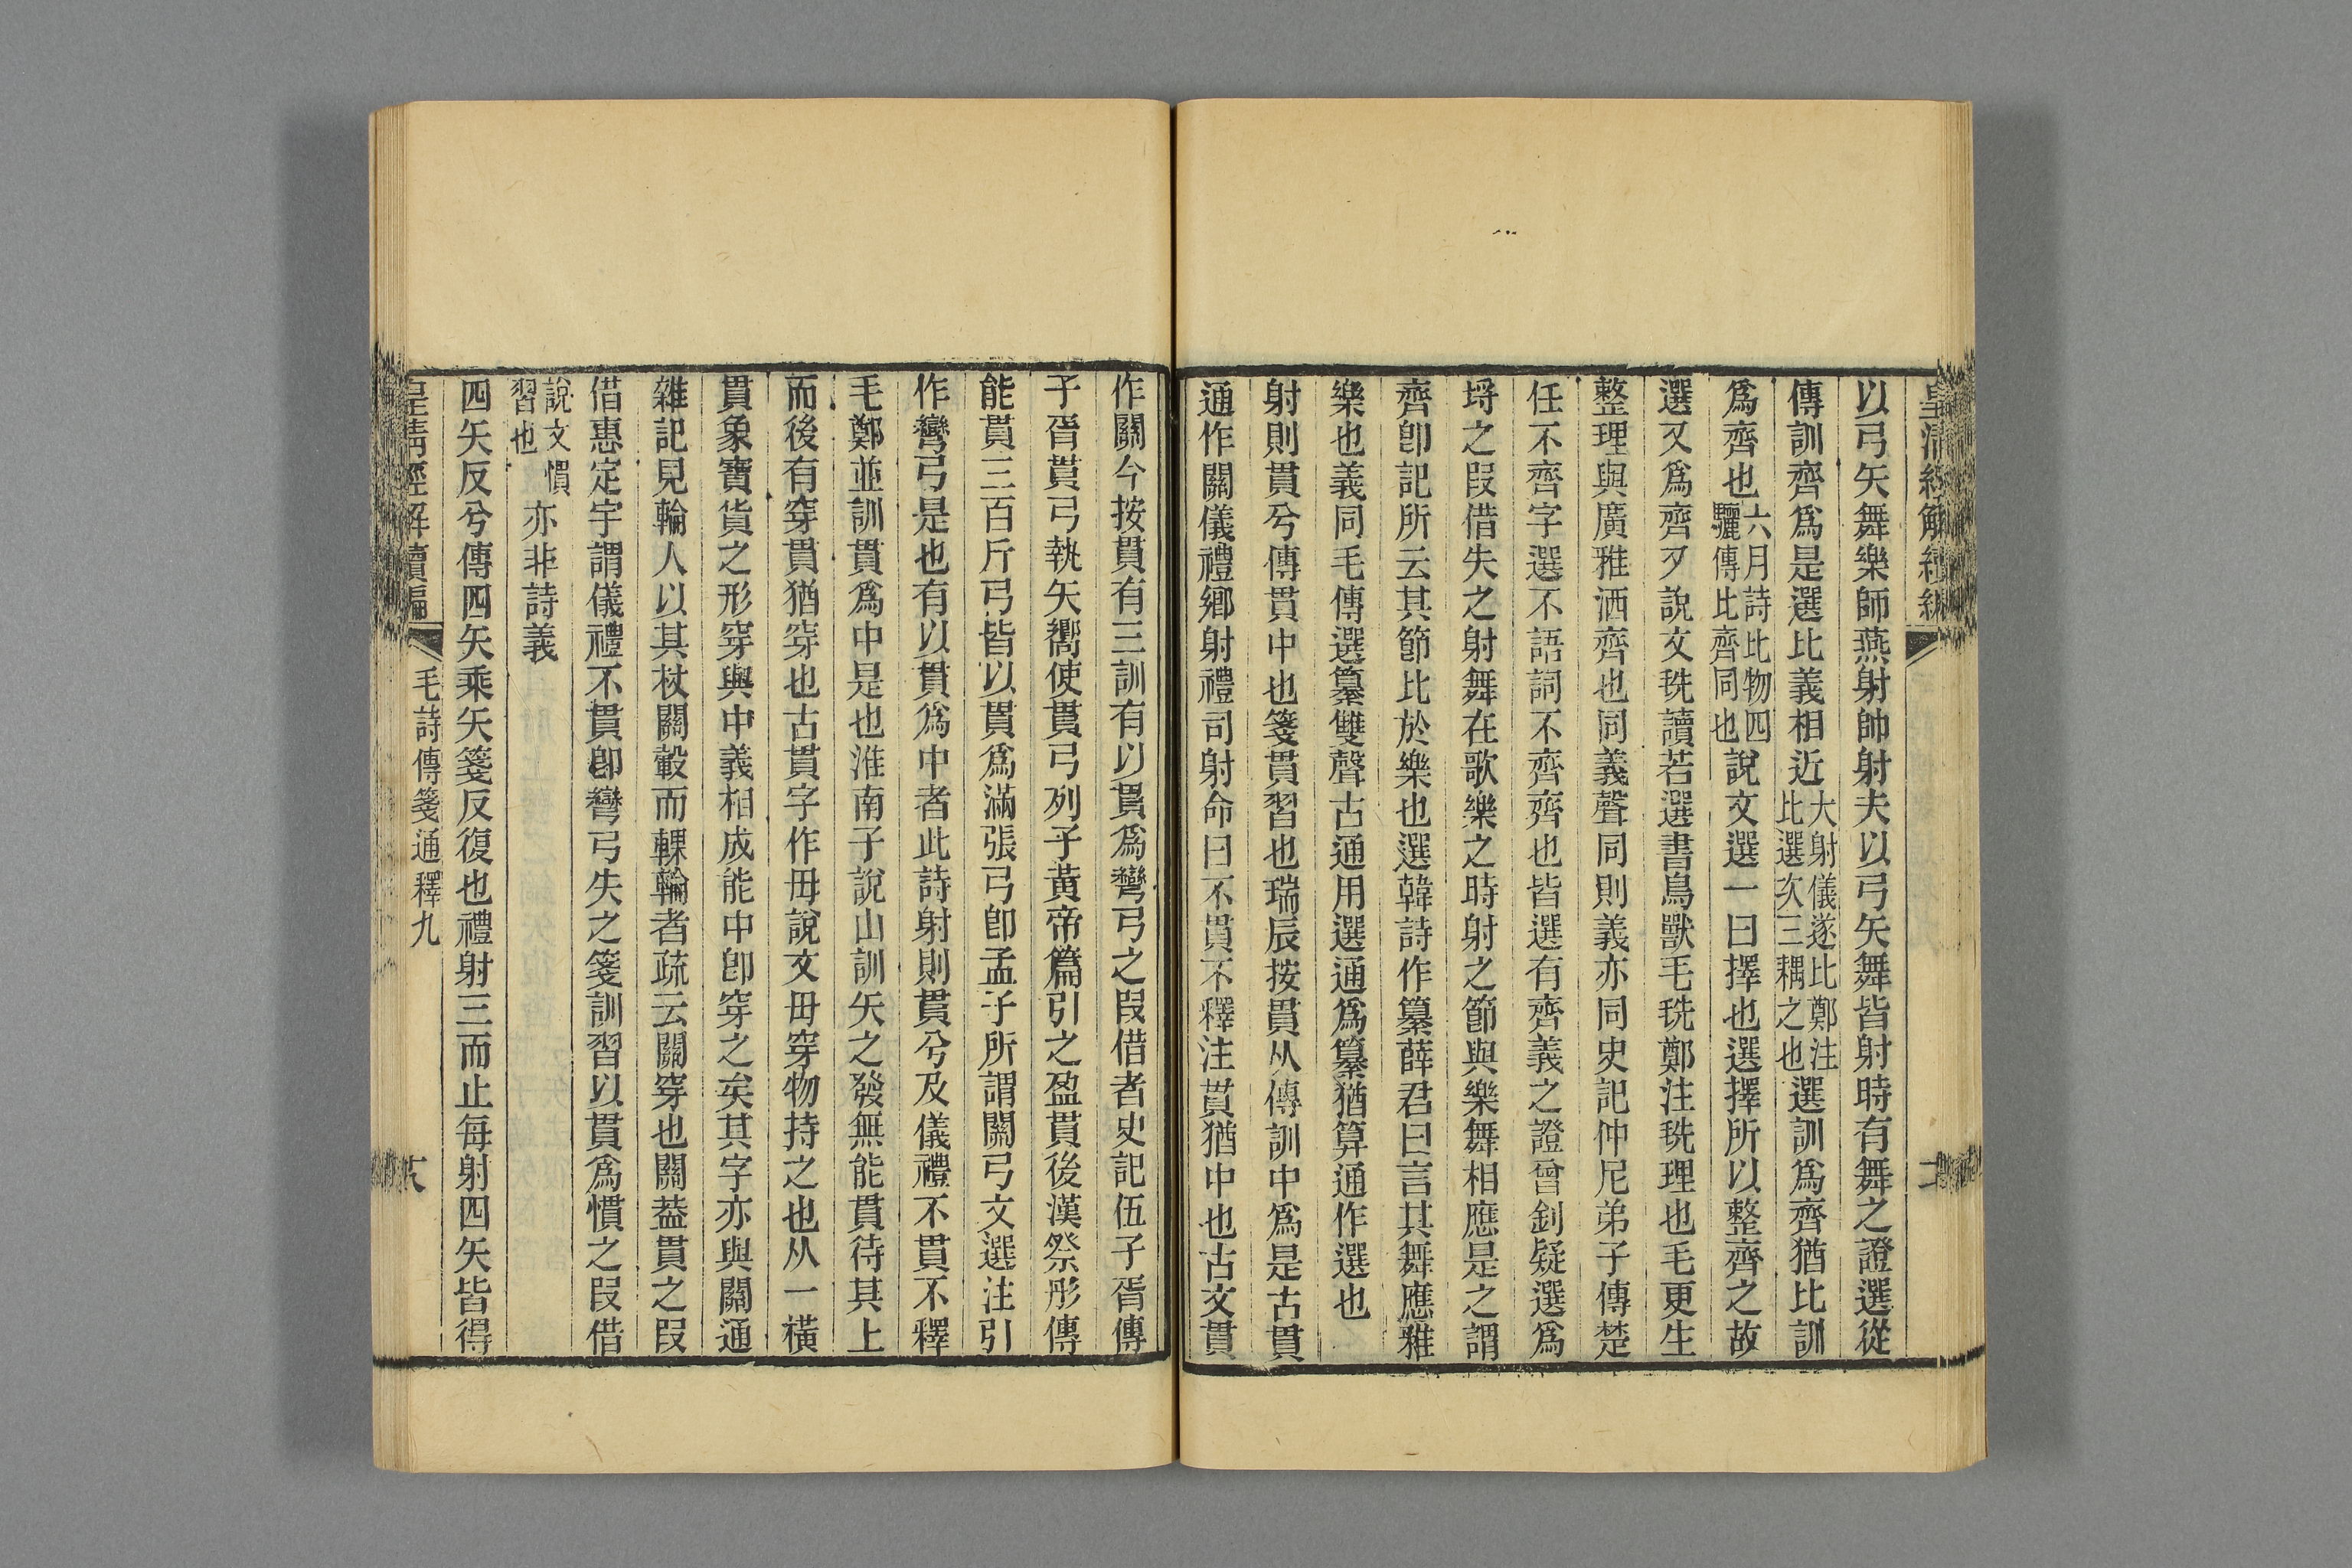 以弓矢舞樂師燕射帥射夫以弓矢舞皆射時有舞之證選從
傳訓齊爲是選比義相近大射儀遂比鄭注比選次三耦之也選訓爲齊猶比訓
爲齊也六月詩比物四驪傳比齊同也說文選一曰擇也選擇所以整齊之故
選又爲齊歹說文毨讀若選書鳥獸毛毨鄭注毨理也毛更生
整理與廣雅洒齊也同義聲同則義亦同史記仲尼弟子傳楚
任不齊字選不語詞不齊齊也皆選有齊義之證曾釗疑選爲
埒之叚借失之射舞在歌樂之時射之節與樂舞相應是之謂
齊卽記所云其節比於樂也選韓詩作纂薛君曰言其舞應雅
樂也義同毛傳選纂雙聲古通用選通爲纂猶算通作選也
射則貫兮傳貫中也箋貫習也瑞辰按貫从傳訓中爲是古貫
通作關儀禮鄉射禮司射命曰不貫不釋注貫猶中也古文貫
作關今按貫有三訓有以貫爲彎弓之叚借者史記伍子胥傳
子胥貫弓執矢嚮使貫弓列子黃帝篇引之盈貫後漢祭肜傳
能貫三百斤弓皆以貫爲滿張弓卽孟子所謂關弓文選注引
作彎弓是也有以貫爲中者此詩射則貫兮及儀禮不貫不釋
毛鄭並訓貫爲中是也淮南子說山訓矢之發無能貫待其上
而後有穿貫猶穿也古貫字作毌說文毌穿物持之也从一橫
貫象寶貨之形穿與中義相成能中卽穿之矣其字亦與關通
雜記見輪人以其杖關轂而輠輪者疏云關穿也關葢貫之叚
借惠定宇謂儀禮不貫卽彎弓失之箋訓習以貫爲慣之叚借
說文慣習也亦非詩義
四矢反兮傳四矢乘矢箋反復也禮射三而止每射四矢皆得
皇清經解續編
毛詩傳箋通釋九